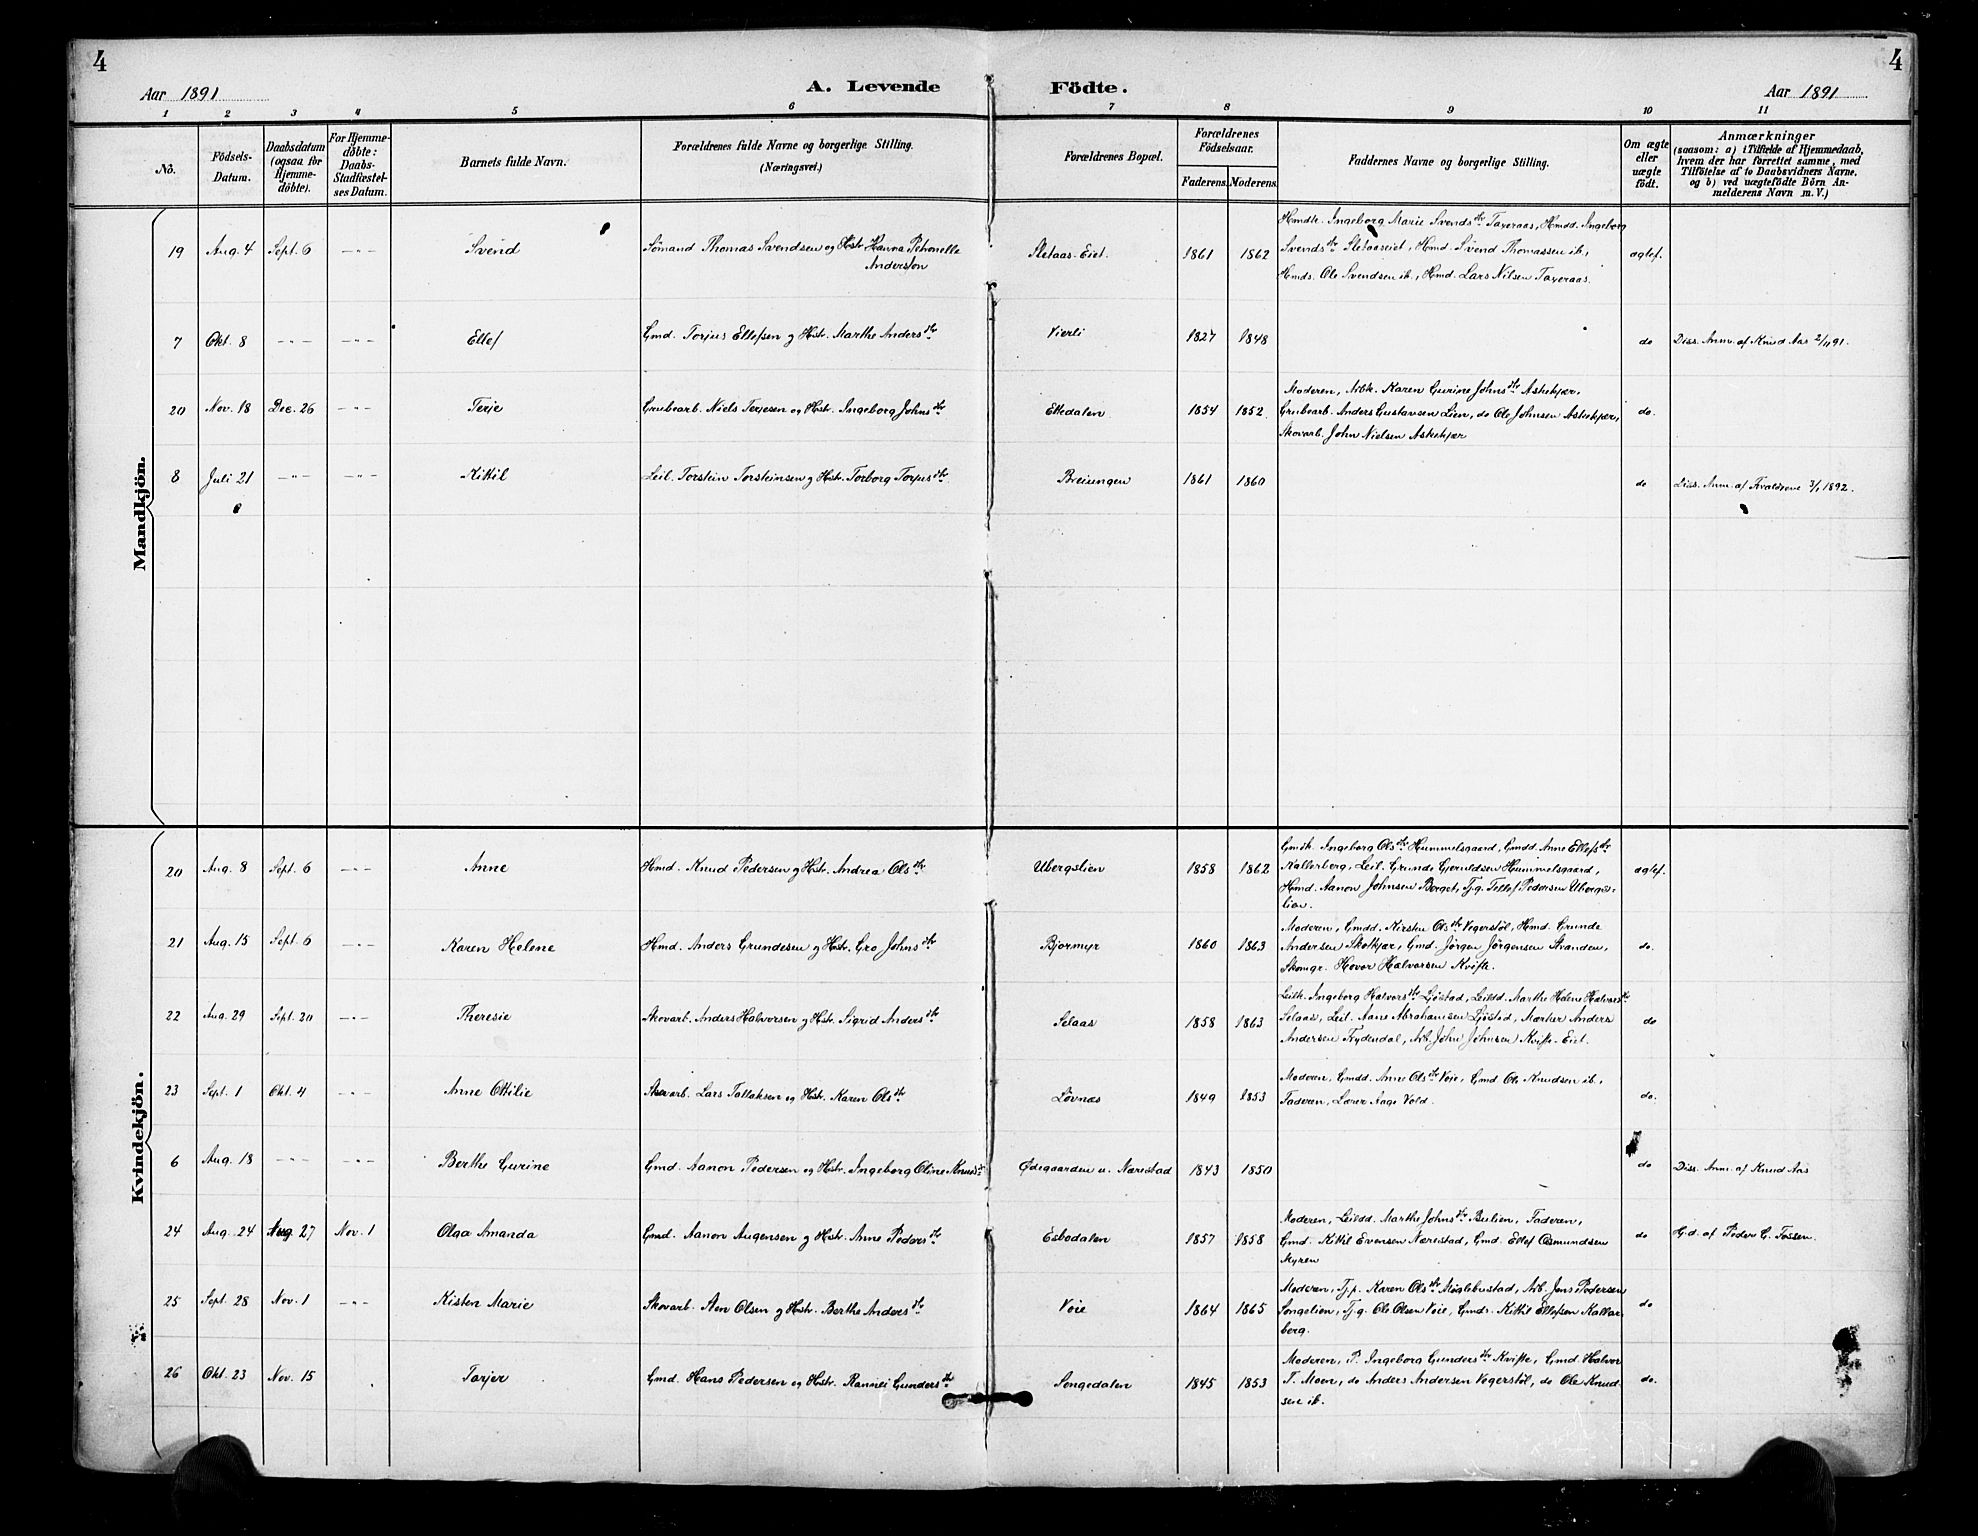 4
4
Aar 1891
A. Levende Födte.
Aar 1891
1 2 3 4 5 6 7 8 9 10 11
No.
Födsels-Datum.
Daabsdatum (ogsaa for Hjemme-döbte).
For Hjemme-döbte: Daabs-Stadfæstel-ses Datum.
Barnets fulde Navn.
Forældrenes fulde Navne og borgerlige Stilling. (Næringsvei.)
Forældrenes Bopæl.
Forældrenes Födselsaar.
Faderens. Moderens.
Faddernes Navne og borgerlige Stilling.
Om ægte eller uægte födt.
Anmærkninger
(saasom: a) i Tilfælde af Hjemmedaab, hvem der har forrettet samme, med Tilföielse af to Daabsvidners Navne, og b) ved uægtefödte Börn An-melderens Navn m. V.)
Mandkjön.
19 Aug. 4 Sept. 6 -"- Svend Sömand Thomas Svendsen og Hstr. Hanna Petronelle Anderston Sletaas-Eiet. 1861 1862 Hmdk. Ingeborg Marie Svendsdtr Taxeraas, Hmdd. Ingeborg
Svendsdtr Sletaaseiet, Hmd. Svend Thomassen ib.,
Hmds. Ole Svendsen ib., Hmd. Lars Nilsen Taxeraas. ægtef.
7 Okt. 8 -"- -"- Ellef Gmd. Torjus Ellefsen og Hstr. Marthe Andersdtr Vierli 1827 1848 do Diss. Anm. af Knud Aas 2/11 91.
20 Nov. 18 Dec. 26 -"- Terje Grubearb. Niels Terjesen og Hstr. Ingeborg Johnsdtr Elledalen 1854 1852 Moderen, Arbk. Karen Gurine Johnsdtr Askekjær,
Grubearb. Anders Gustavsen Lien, do Ole Johnsen Askekjær,
Skovarb. John Nielsen Askekjær do.
8 Juli 21 -"- -"- Kittil Leil. Torstein Torsteinsen og Hstr. Torborg Torjusdtr. Breiungen 1861 1860 do Diss. Anm. af 3/1 1892.
Kvindekjön.
20 Aug. 8 Sept. 6 -"- Anne Hmd. Knud Pedersen og Hstr. Andrea Olsdtr Ubergslien 1858 1862 Gmdk. Ingeborg Olsdtr Hummelsgaard, Gmdd. Anne Ellefsdtr
Kallerberg, Leil. Grunde Gjeruldsen Hummelsgaard,
Hmd. Aanon Johnsen Borget, Tjg. Tellef Pedersen Ubergs-
lien. ægtef.
21 Aug. 15 Sept. 6 -"- Karen Helene Hmd. Anders Grundesen og Hstr. Gro Johnsdtr Bjormyr 1860 1863 Moderen, Gmdd. Kirstine Olsdtr Vegerstöl, Hmd. Grunde
Andersen Skotkjær, Gmd. Jörgen Jörgensen Stranden,
Skomgr. Hovor Halvorsen Kvifte. do.
22 Aug. 29 Sept. 20 -"- Theresie Skovarb. Anders Halvorsen og Hstr. Sigrid Andersdtr Selaas 1858 1863 Leilk. Ingeborg Halvorsdtr Ljöstad, Leildd. Marthe Helene Halvorsdtr
Selaas, Leil. Aane Abrahamsen Ljöstad, Mærker Anders
Andersen Frydendal, Arb. John Johnsen Kvifte-Eiet. do
23 Sept. 1 Okt. 4 -"- Anne Ottilie Skovarb. Lars Tallaksen og Hstr. Karen Olsdtr Lövnæs 1849 1853 Moderen, Gmdd. Anne Olsdtr Vöie, Gmd. Ole Knudsen ib.,
Faderen, Lærer Aage Vold. do.
6 Aug. 18 -"- -"- Berthe Gurine Gmd. Aanon Pedersen og Hstr. Ingeborg Oline Knudsdtr Ødegaarden u. Nærestad 1843 1850 do Diss. Anm. af Knud Aas
24 Aug. 24 Aug. 27 Nov. 1 Olga Amanda Gmd. Aanon Augensen og Hstr. Anne Pedersdtr Esbodalen 1857 1858 Moderen, Leildd. Marthe Johnsdtr Bulien, Faderen,
Gmd. Kittil Evensen Nærestad, Gmd. Ellef Osmundsen
Myren do H.d. af Peder G. Fossen.
25 Sept. 28 Nov. 1 -"- Kisten Marie Skovarb. Aen Olsen og Hstr. Berthe Andersdtr Vöie 1864 1865 Moderen, Tjp. Karen Olsdtr Möglebustad, Arb. Jens Pedersen
Songelien, Tjg. Ole Olsen Vöie, Gmds. Kittil Ellefsen Kallar-
berg. do
26 Okt. 23 Nov. 15 Torjer Gmd. Hans Pedersen og Hstr. Rannei Gundersdtr Songedalen 1845 1853 Moderen, P. Ingeborg Gundersdtr Kvifte, Gmd. Halvor
T. Moen, do Anders Andersen Vegerstöl, do Ole Knud-
sen ib. do.